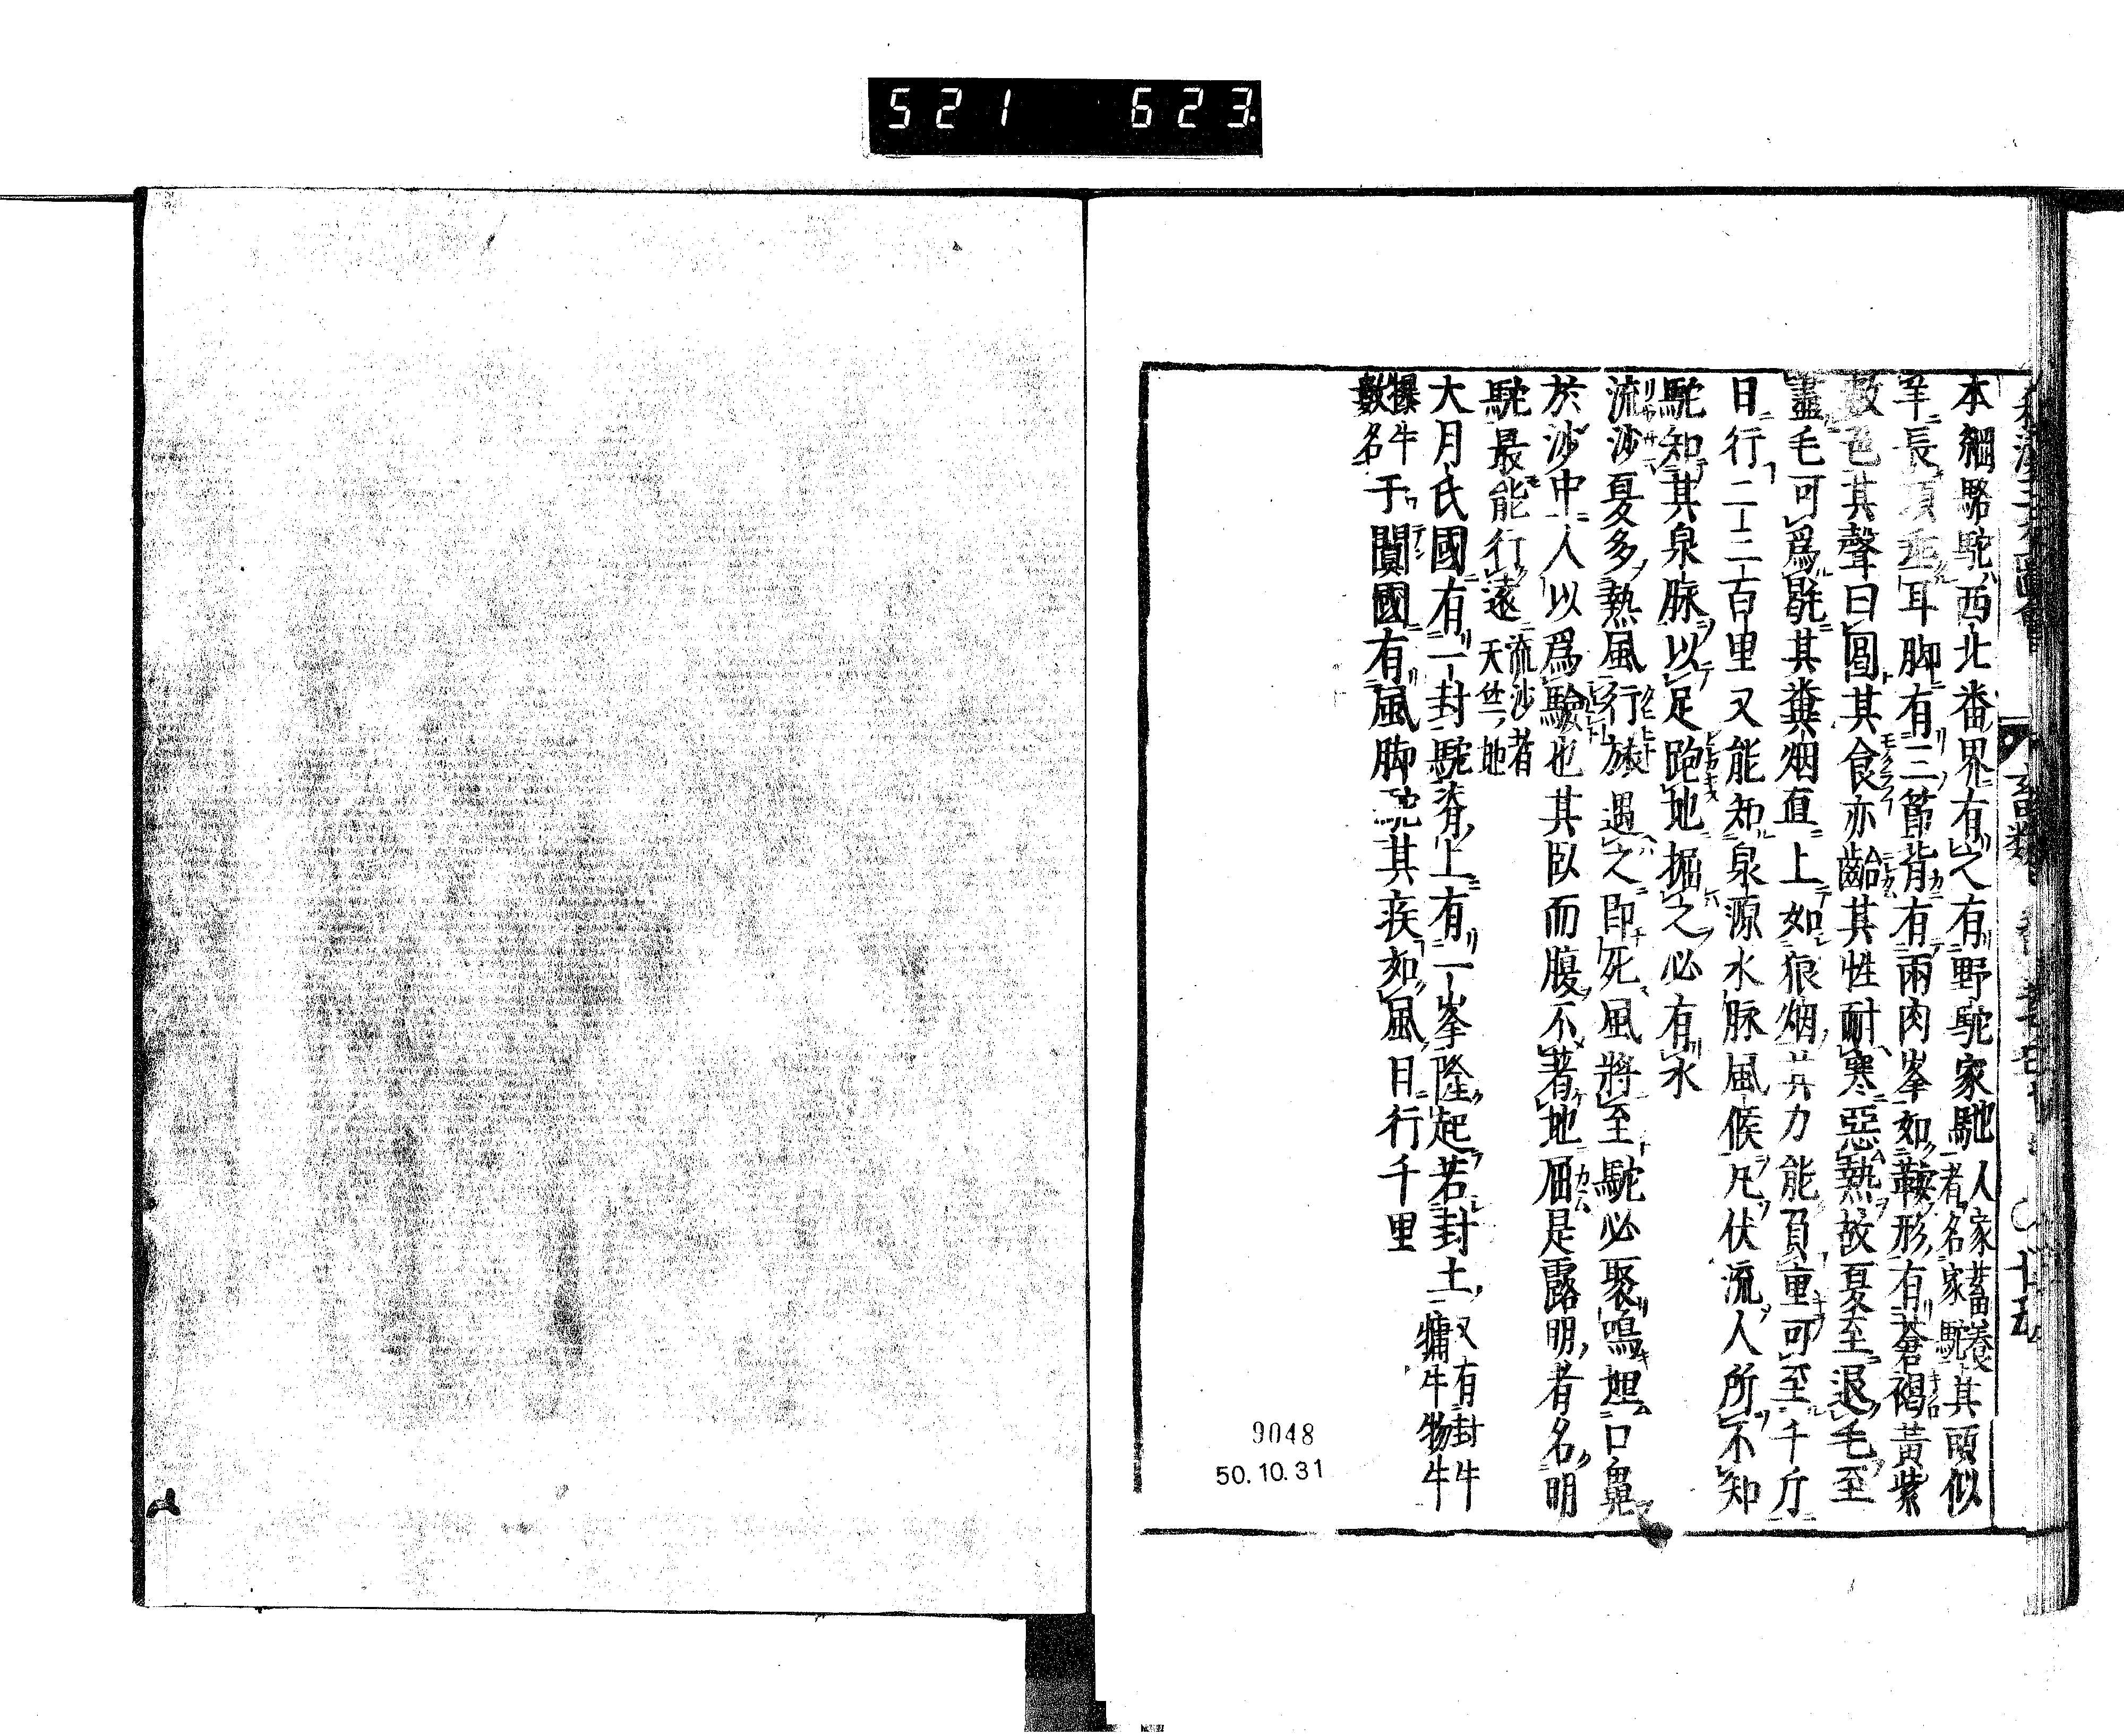 521 623
本綱駱駝西北番界有之有野駝家馳人家蓄養者名家駝其頭似
羊長項垂耳脚有三節背有兩肉峯如鞍形有蒼褐黃紫
數色其聲曰圔其食亦齝其性耐寒惡熱故夏至退毛至
盡毛可爲毼其糞烟直上如狼烟其力能負重可至千斤
日行二三百里又能知泉源水脉風候凡伏流人所不知
駝知其泉脉以足跑地掘之必有水
流沙夏多熱風行旅遇之即死風將至駝必聚鳴埋口鼻
於沙中人以爲驗也其臥而腹不著地屈足露明者名明
駝最能行遠流沙者天竺地
大月氏國有一封駝脊上有一峯隆起若封土又有封牛犎牛物牛
犦牛數名于闐國有風脚駝其疾如風日行千里
畜類
9048
50.10.31